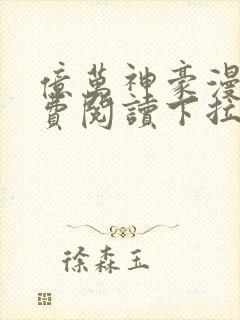 億萬神豪漫
費閱讀下拉
徐森玉